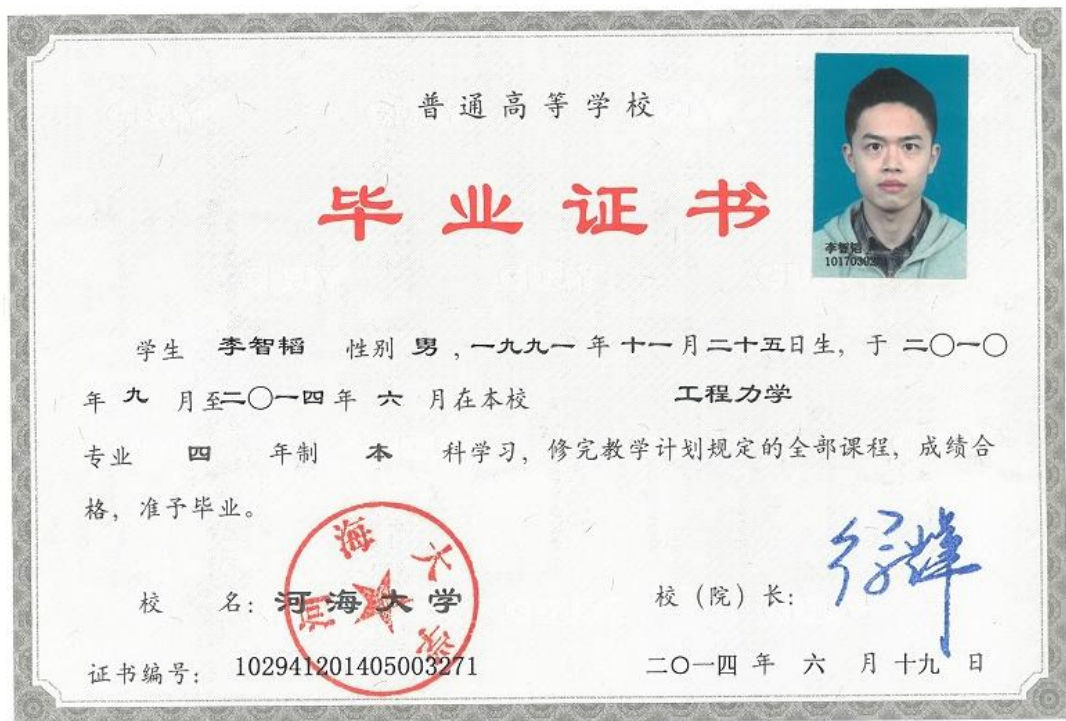 普通高等学校
毕业证书
李智韬
学生 李智韬 性别 男 , 一九九一 年 十一 月 二十五 日生, 于 二〇一〇
年 九 月至 二〇一四 年 六 月在本校 工程力学
专业 四 年制 本 科学习, 修完教学计划规定的全部课程, 成绩合
格, 准予毕业。
河海大学
校 名: 河海大学 校 (院) 长:
证书编号: 102941201405003271 二〇一四 年 六 月 十九 日